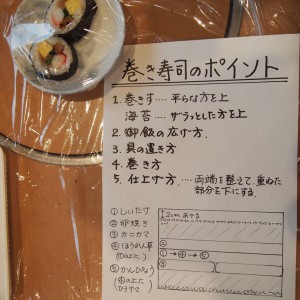 巻き寿司のポイント
1. 巻きす‥‥平らな方を上
海苔‥‥ザラっとした方を上
2. 御飯の広げ方
3. 具の置き方
4. 巻き方
5. 仕上げ方.‥‥両端を整えて、重ねた
部分を下にする.
①しいたけ
②卵焼き
③カニカマ
④ほうれん草
(①の上に)
⑤かんぴょう
(④の上に
ひろげる
2cmあける
②
①→④→⑤
③